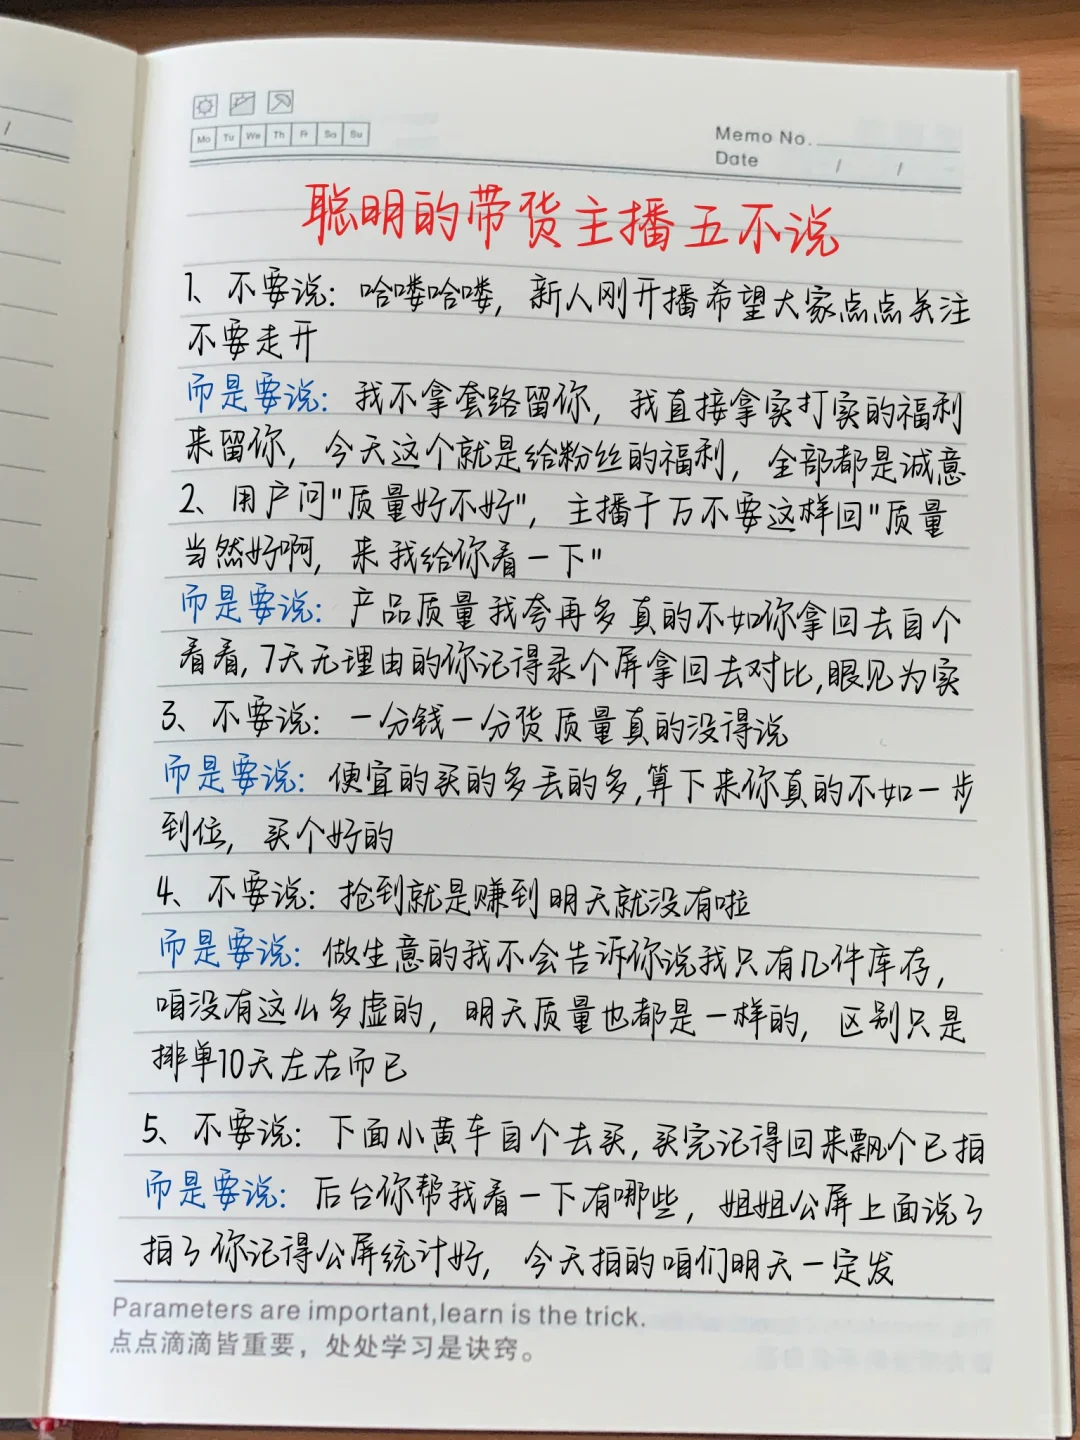 Mo Tu We Th Fr Sa Su
Memo No.
Date / /
聪明的带货主播五不说
1、不要说：哈喽哈喽，新人刚开播希望大家点点关注
不要走开
而是要说：我不拿套路留你，我直接拿实打实的福利
来留你，今天这个就是给粉丝的福利，全部都是诚意
2、用户问"质量好不好"，主播千万不要这样回"质量
当然好啊，来我给你看一下"
而是要说：产品质量我夸再多真的不如你拿回去自个
看看，7天无理由的你记得录个屏拿回去对比，眼见为实
3、不要说：一分钱一分货质量真的没得说
而是要说：便宜的买的多丢的多，算下来你真的不如一步
到位，买个好的
4、不要说：抢到就是赚到明天就没有啦
而是要说：做生意的我不会告诉你说我只有几件库存，
咱没有这么多虚的，明天质量也都是一样的，区别只是
排单10天左右而已
5、不要说：下面小黄车自个去买，买完记得回来飘个已拍
而是要说：后台你帮我看一下有哪些，姐姐公屏上面说了
拍了你记得公屏统计好，今天拍的咱们明天一定发
Parameters are important,learn is the trick.
点点滴滴皆重要，处处学习是诀窍。